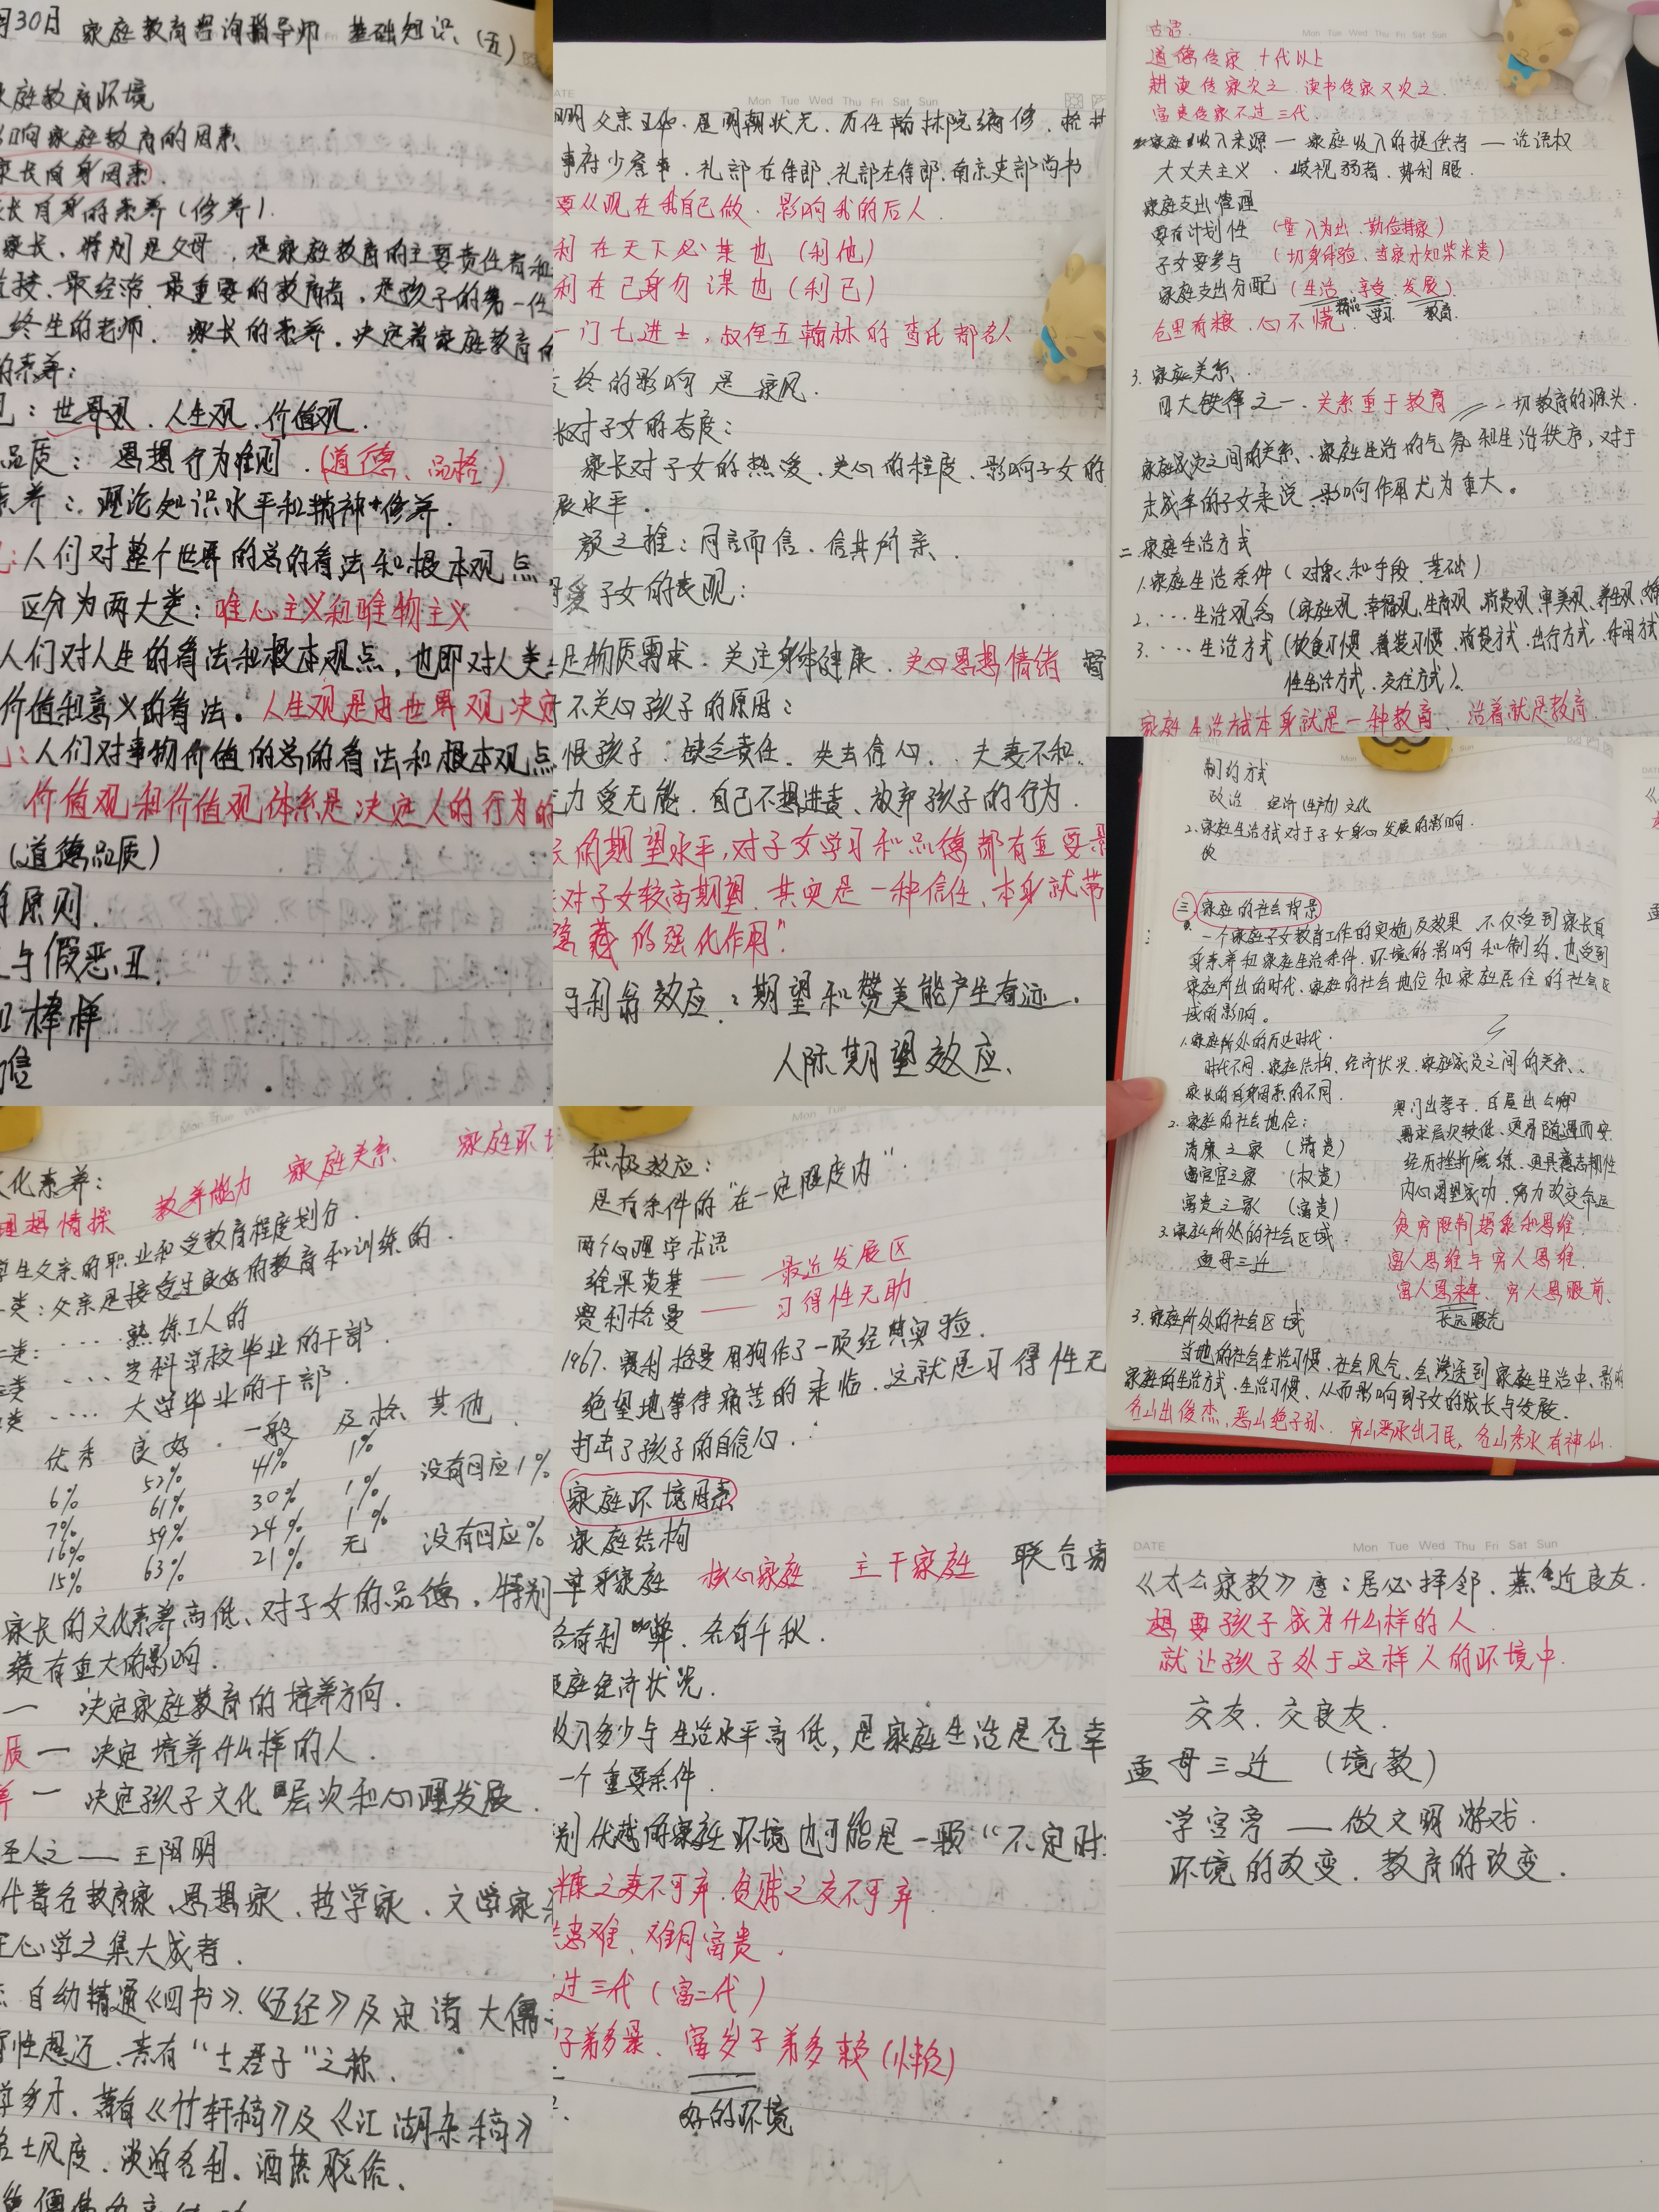 月30日 家庭教育咨询指导师 基础知识（五）
家庭教育环境
影响家庭教育的因素
家长自身因素
家长自身的素养（修养）.
家长、特别是父母，是家庭教育的主要责任者和
直接、最经常、最重要的教育者，是孩子的第一任
终生的老师. 家长的素养，决定着家庭教育的
的素养：
：世界观、人生观、价值观
品质：思想行为准则.（道德、品格）
素养：理论知识水平和精神修养.
：人们对整个世界的总的看法和根本观点
区分为两大类：唯心主义和唯物主义
人们对人生的看法和根本观点，也即对人类
价值和意义的看法。人生观是由世界观决定
：人们对事物价值的总的看法和根本观点
价值观和价值观体系是决定人的行为的
（道德品质）
原则.
与假恶丑
榜样
信
DATE Mon Tue Wed Thu Fri Sat Sun
明父亲王华. 是明朝状元. 历任翰林院编修.
事府少詹事. 礼部右侍郎、礼部左侍郎、南京吏部尚书
要从现在我自己做. 影响我的后人.
利在天下必谋也（利他）
利在己身勿谋也（利己）
一门七进士，叔侄五翰林的查氏都名人
终的影响是家风.
对子女的态度：
家长对子女的热爱、关心的程度、影响子女的
展水平.
颜之推：同言而信，信其所亲.
爱子女的表现：
足物质需求. 关注身体健康. 关心思想情绪 督
不关心孩子的原因：
恨孩子. 缺乏责任. 失去信心. 夫妻不和.
力受无能. 自己不想进责、放弃孩子的行为.
的期望水平，对子女学习和品德都有重要影
对子女较高期望. 其实是一种信任、本身就带
隐藏的强化作用”
马利翁效应：期望和赞美能产生奇迹.
人际期望效应.
Mon Tue Wed Thu Fri Sat Sun
古语.
道德传家 十代以上
耕读传家次之 读书传家又次之.
富贵传家不过三代.
家庭收入来源 — 家庭收入的提供者 — 话语权
大丈夫主义. 歧视弱者. 势利眼.
家庭支出管理
要有计划性（量入为出. 勤俭持家）
子女要参与（切身体验、当家才知柴米贵）
家庭支出分配（生活、享受、发展）
学习 教育.
仓里有粮，心不慌.
3. 家庭关系.
四大铁律之一. 关系重于教育 一切教育的源头.
家庭成员之间的关系、家庭生活的气氛和生活秩序，对于
未成年的子女来说，影响作用尤为重大。
二 家庭生活方式
1. 家庭生活条件（对象和手段 基础）
2. ···· 生活观念（家庭观、幸福观、生育观、消费观、审美观、养生观、婚
3. ···· 生活方式（饮食习惯、着装习惯、消费方式、出行方式、休闲方式
性生活方式. 交往方式）.
家庭生活方式本身就是一种教育. 活着就是教育
制约方式
政治 经济（生产力）文化
2. 家庭生活方式对于子女身心发展的影响.
三 家庭的社会背景
一个家庭子女教育工作的实施及效果，不仅受到家长自
身素养和家庭生活条件、环境的影响和制约，也受到
家庭所出的时代、家庭的社会地位和家庭居住的社会区
域的影响。
1. 家庭所处的历史时代.
时代不同. 家庭结构、经济状况、家庭成员之间的关系、
家长的自身因素的不同.
2. 家庭的社会地位：
清廉之家（清贵）
官宦之家（权贵）
富贵之家（富贵）
寒门出孝子. 白屋出公卿
需求层次较低、更易随遇而安
经历挫折磨练、更具意志韧性
内心渴望成功. 努力改变命运
贫穷限制想象和思维.
富人思维与穷人思维.
富人思来年、穷人思眼前.
长远眼光
3. 家庭所处的社会区域.
孟母三迁
3. 家庭所处的社会区域
当地的社会生活习惯、社会风气、会渗透到家庭生活中、影响
家庭的生活方式、生活习惯、从而影响到子女的成长与发展.
名山出俊杰，恶山绝子孙. 穷山恶水出刁民，名山秀水有神仙.
文化素养：
理想情操 教养能力 家庭关系 家庭环境
学生父亲的职业和受教育程度划分.
一类：父亲是接受过良好的教育和训练的.
类：···· 熟练工人的
类 ···· 专科学校毕业的干部.
类 ···· 大学毕业的干部.
优秀 良好 一般 及格 其他
6% 52% 41% 1% 没有回应1%
7% 61% 30% 1%
16% 59% 24% 1%
15% 63% 21% 无 没有回应%
家长的文化素养高低、对子女的品德，特别
绩有重大的影响.
— 决定家庭教育的培养方向.
质 — 决定培养什么样的人.
养 — 决定孩子文化层次和心理发展.
圣人之 — 王阳明
代著名教育家、思想家、哲学家、文学家
心学之集大成者.
自幼精通《四书》、《五经》及宋诸大儒
性超迈、素有“士君子”之称.
学多才. 著有《竹轩稿》及《江湖杂稿》
名士风度. 淡泊名利. 洒落脱俗.
积极效应：
是有条件的“在一定限度内”.
两个心理学术语
维果茨基 —— 最近发展区
赛利格曼 —— 习得性无助
1967. 赛利格曼用狗作了一项经典实验.
绝望地等待痛苦的来临. 这就是习得性无
打击了孩子的自信心.
家庭环境因素
家庭结构
单亲家庭 核心家庭 主干家庭 联合家
各有利弊. 各有千秋.
家庭经济状况.
收入多少与生活水平高低，是家庭生活是否幸
一个重要条件.
别优越的家庭环境也可能是一颗“不定时
糠之妻不可弃. 贫贱之交不可弃
患难、难同富贵.
过三代（富二代）
子弟多暴、富岁子弟多赖（懒）
好的环境
DATE Mon Tue Wed Thu Fri Sat Sun
《太公家教》唐：居必择邻. 慕近良友.
想要孩子成为什么样的人
就让孩子处于这样人的环境中.
交友. 交良友.
孟母三迁（境教）
学宫旁 — 做文明游戏.
环境的改变. 教育的改变.